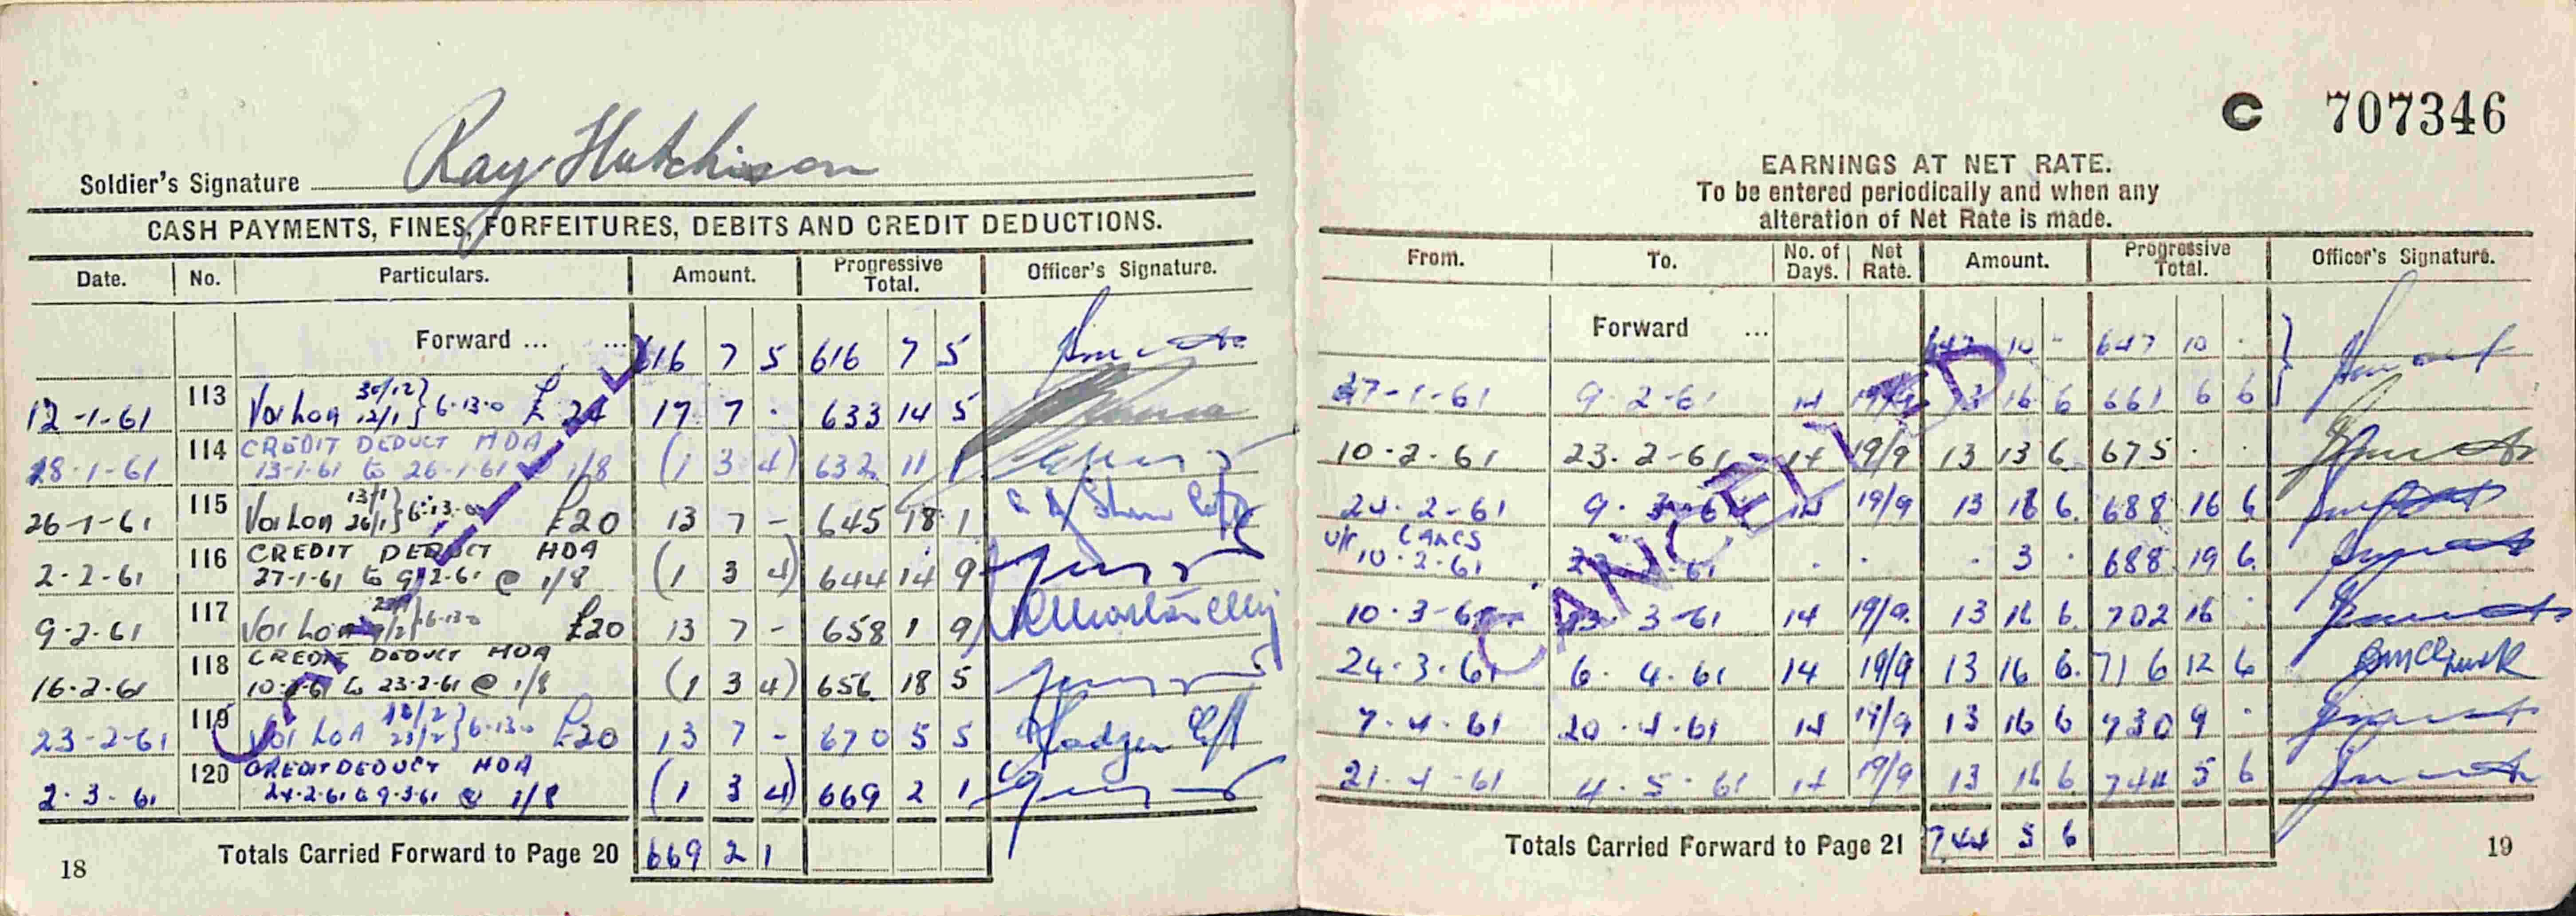 Soldier's Signature Ray Hutchison
CASH PAYMENTS, FINES, FORFEITURES, DEBITS AND CREDIT DEDUCTIONS.
Date. No. Particulars. Amount. Progressive Total. Officer's Signature.
Forward ... ... 616 7 5 616 7 5
12-1-61 113 30/12 12/1 } 6.13.0 £ 24 17 7 . 633 14 5
18-1-61 114 CREDIT DEDUCT HDA
13-1-61 to 26-1-61 @ 1/8 (1 3 4) 632 11 1
26-1-61 115 13/1 26/1 } 6.13.0 £20 13 7 - 645 18 1
2-2-61 116 CREDIT DEDUCT HDA
27-1-61 to 9-2-61 @ 1/8 (1 3 4) 644 14 9
9-2-61 117 6.13.0 £20 13 7 - 658 1 9
16-2-61 118 CREDIT DEDUCT HDA
10-2-61 to 23-2-61 @ 1/8 (1 3 4) 656 18 5
23-2-61 119 6.13.0 £20 13 7 - 670 5 5
2.3.61 120 CREDIT DEDUCT HDA
24-2-61 to 9-3-61 @ 1/8 (1 3 4) 669 2 1
Totals Carried Forward to Page 20 669 2 1
18
CANCELLED
C 707346
EARNINGS AT NET RATE.
To be entered periodically and when any
alteration of Net Rate is made.
From. To. No. of Days. Net Rate. Amount. Progressive Total. Officer's Signature.
Forward ... 647 10 - 647 10 .
27-1-61 9.2-61 14 19/9 13 16 6 661 6 6
10.2.61 23.2-61 14 19/9 13 13 6 675 . .
24.2-61 9.3-61 14 19/9 13 16 6. 688 16 6
10.2.61 . . . 3 . 688 19 6.
10.3-61 23.3-61 14 19/9. 13 16 6. 702 16 .
24.3.61 6.4.61 14 19/9 13 16 6. 716 12 6
7.4.61 20.4.61 14 19/9 13 16 6 730 9 .
21.4-61 4.5.61 14 19/9 13 16 6 744 5 6
Totals Carried Forward to Page 21 744 5 6
19
CANCELLED